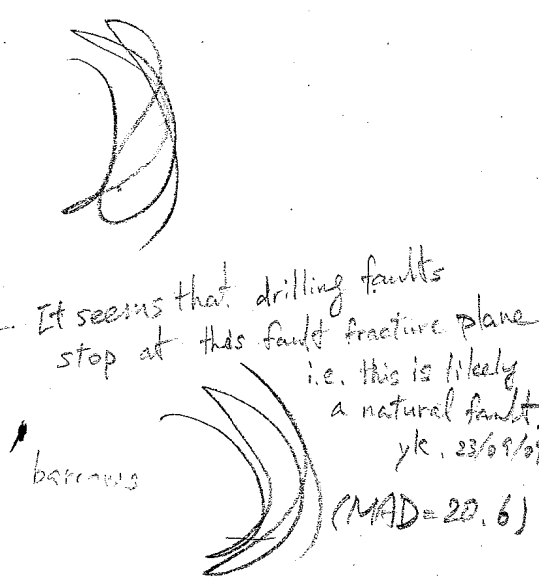 It seems that drilling faults
stop at this fault fracture plane
i.e. this is likely
a natural fault.
yk. 23/09/09
(MAD=20.6)